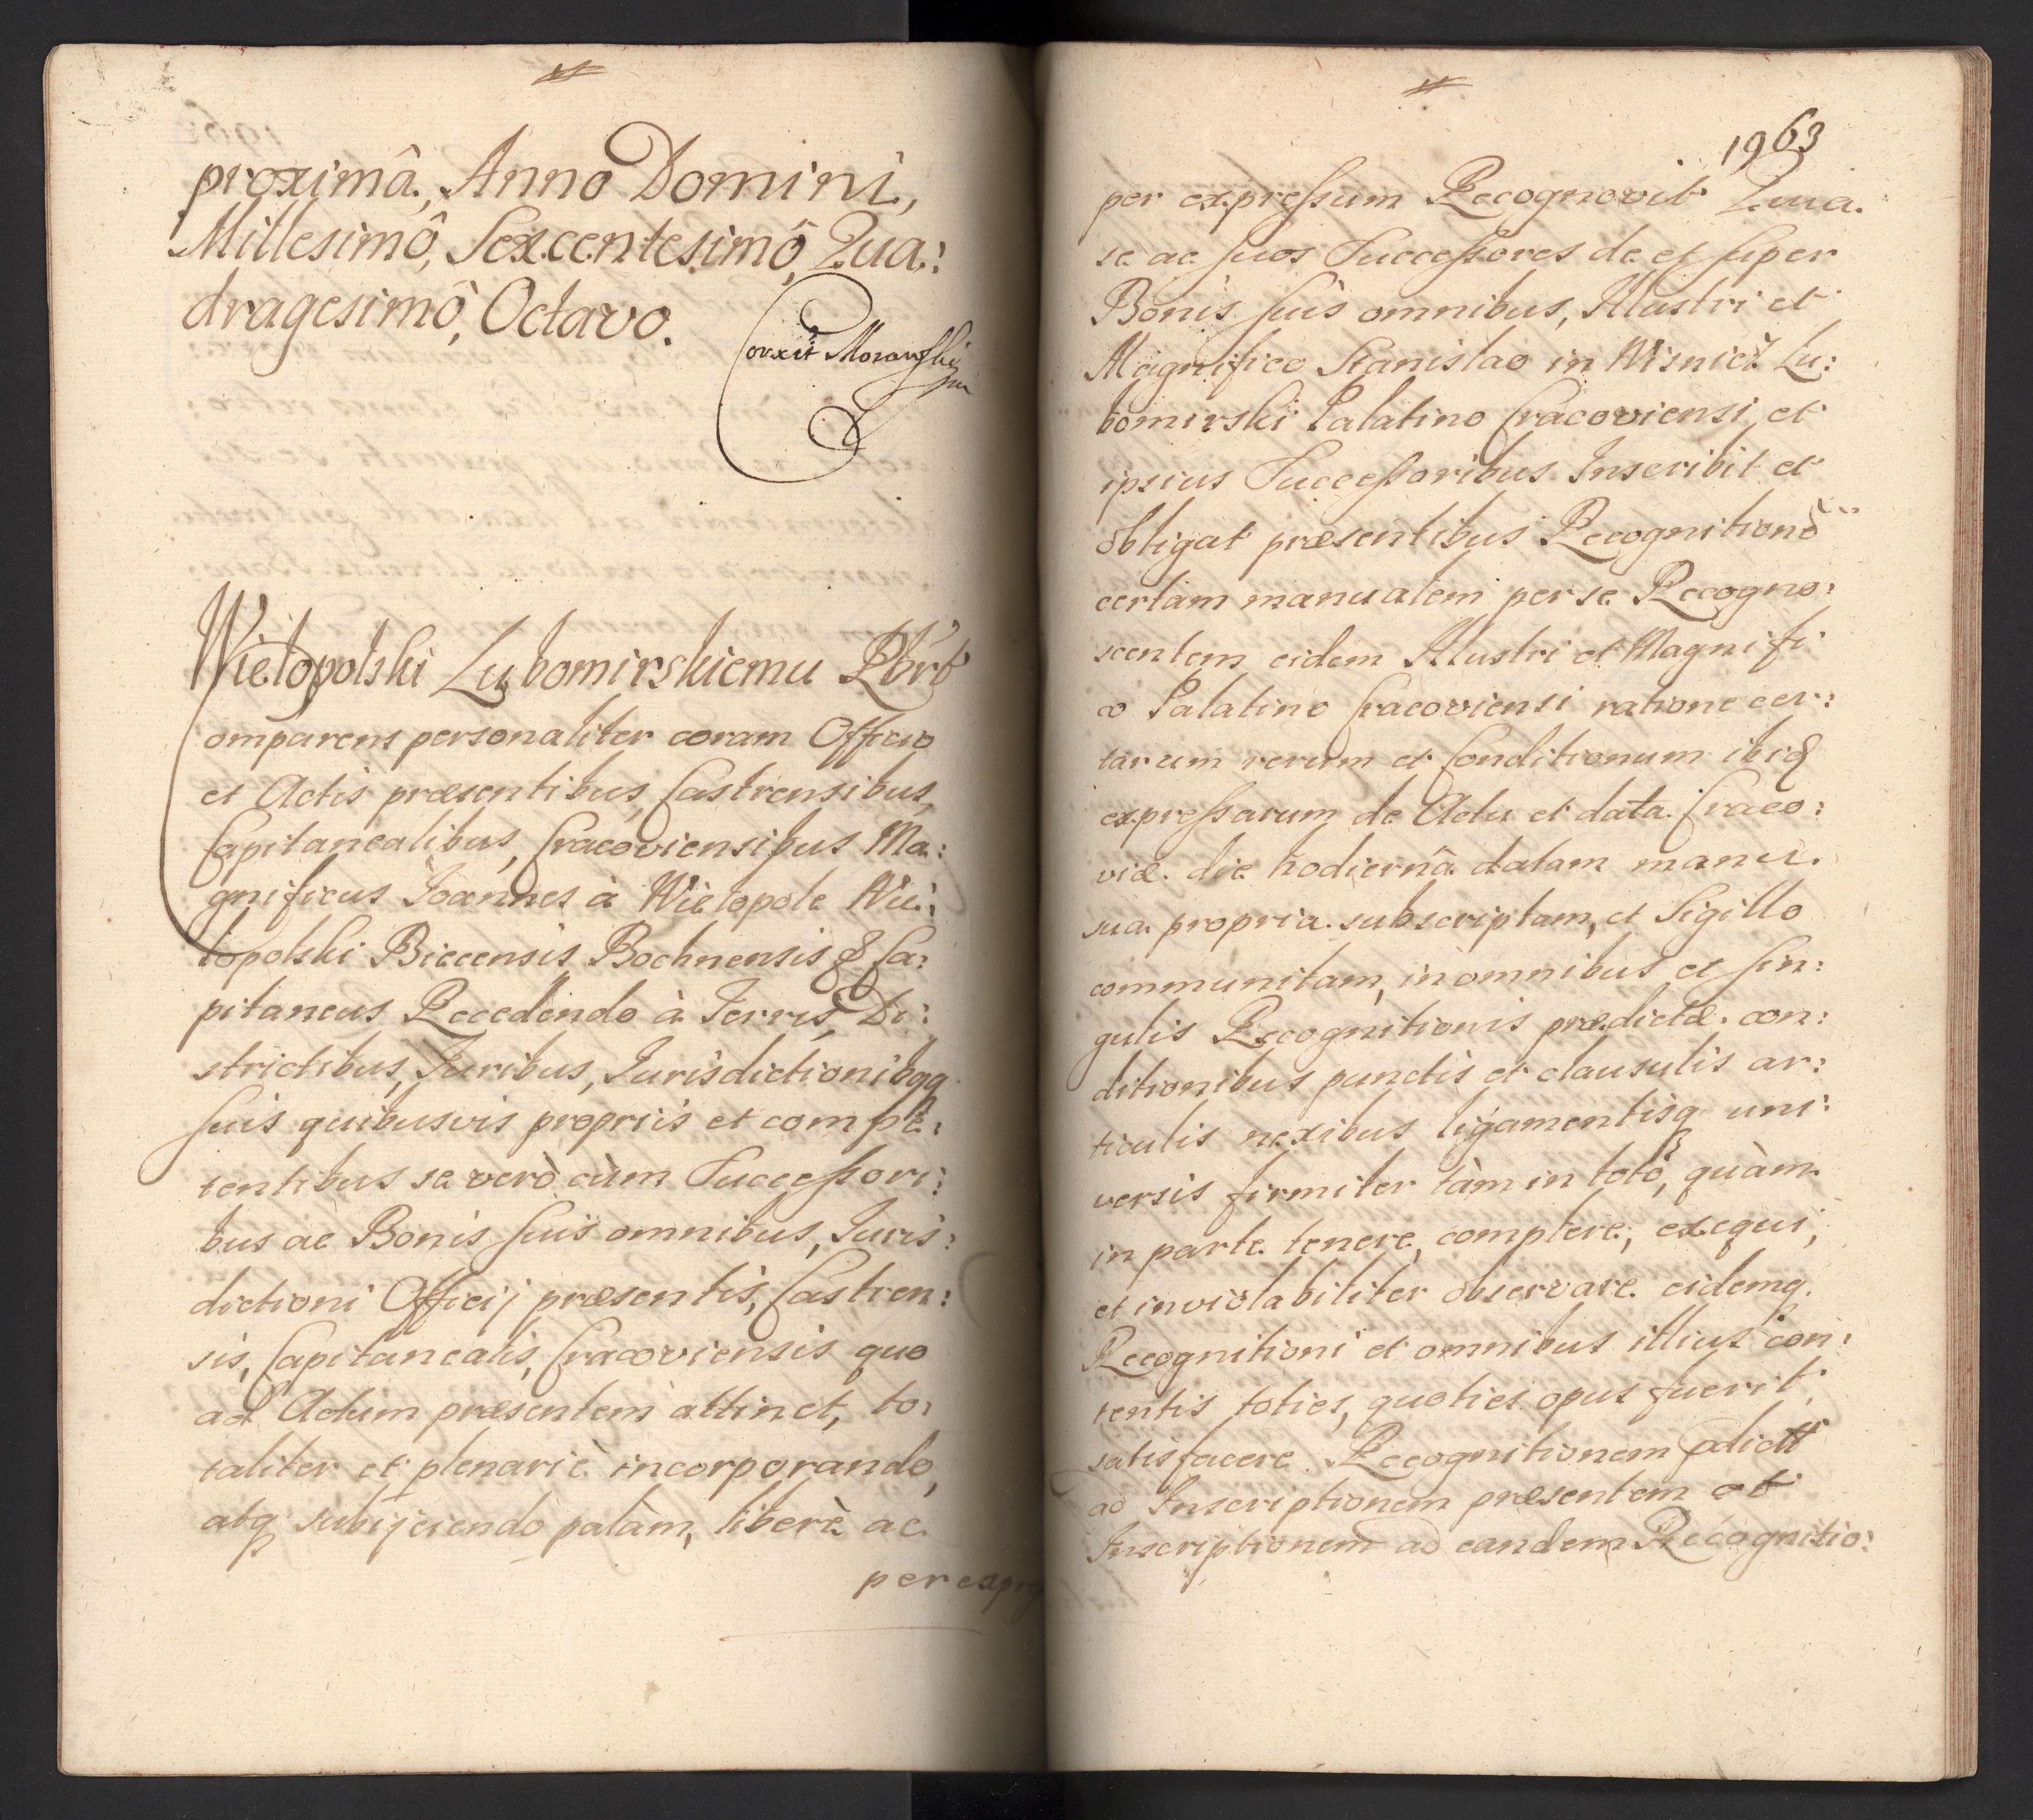 proximâ, Anno Domini,
Millesimô, Sexcentesimô, Qua:
dragesimô, Octavo.
Corxit Morawski
mp
Wielopolski Lubomirskiemu Rbrt
Comparens personaliter coram Officio
et Actis præsentibus, Castrensibus,
Capitanealibus, Cracoviensibus Ma:
gnificus Joannes à Wielopole Wie:
lopolski Biecensis Bochnensis & Ca:
pitaneus Recedendo à Terris, Di:
strictibus, Juribus, Jurisdictionibqq
suis quibusvis propriis et compe:
tentibus se verò cùm Successori:
bus ac Bonis suis omnibus, Juris:
dictioni Officij præsentis, Castren:
sis, Capitanealis, Cracoviensis quo
ad Actum præsentem attinet, to:
taliter et plenariè incorporando,
atq subijciendo palàm, liberè ac
per expre
1963
per expressum Recognovit Quia
se ac suos Successores de et super
Bonis suis omnibus, Illustri et
Magnifico Stanislao in Wisnicz Lu:
bomirski Palatino Cracoviensi et
ipsius Successoribus Inscribit et
obligat præsentibus Recognitionõ
certam manualem per se Recogno:
scentem eidem Illustri et Magnifi
co Palatino Cracoviensi ratione cer:
tarum rerum et Conditionum ibiq
expressarum de Actu et data Craco:
viæ die hodiernâ datam manu
sua propria subscriptam, et Sigillo
communitam, in omnibus et sin:
gulis Recognitionis prædictæ con:
ditionibus punctis et clausulis ar:
ticulis nexibus ligamentisq uni:
versis firmiter tàm in totô, quàm
in parte tenere, complere, exequi,
et inviolabiliter observare eidemq
Recognitioni et omnibus illius con:
tentis toties, quoties opus fuerit,
satisfacere Recognitionem pdictt
ad Inscriptionem præsentem et
Inscriptionem ad eandem Recognitio: